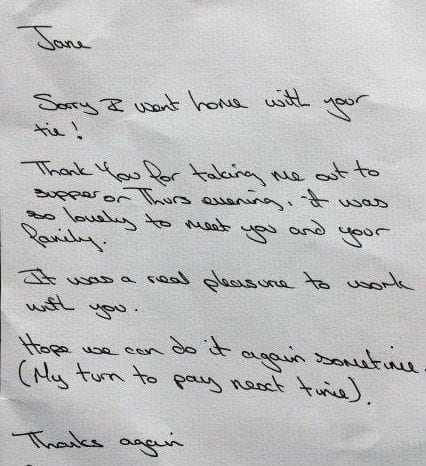 Jane
Sorry I went home with your
tie!
Thank You for taking me out to
supper on Thurs evening, it was
so lovely to meet you and your
family.
It was a real pleasure to work
with you.
Hope we can do it again sometime.
(My turn to pay next time).
Thanks again